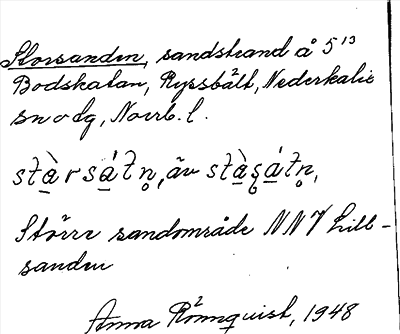 Storsanden, sandstrand å 5¹³
Bodskatan, Ryssbält, Nederkalix
sn o dg, Norrb. l.
stà̱rsá̱tn̥, äv stà̱ʂá̱tn̥,
Större sandområde NNV Lill-
sanden
Anna Rönnquist, 1948